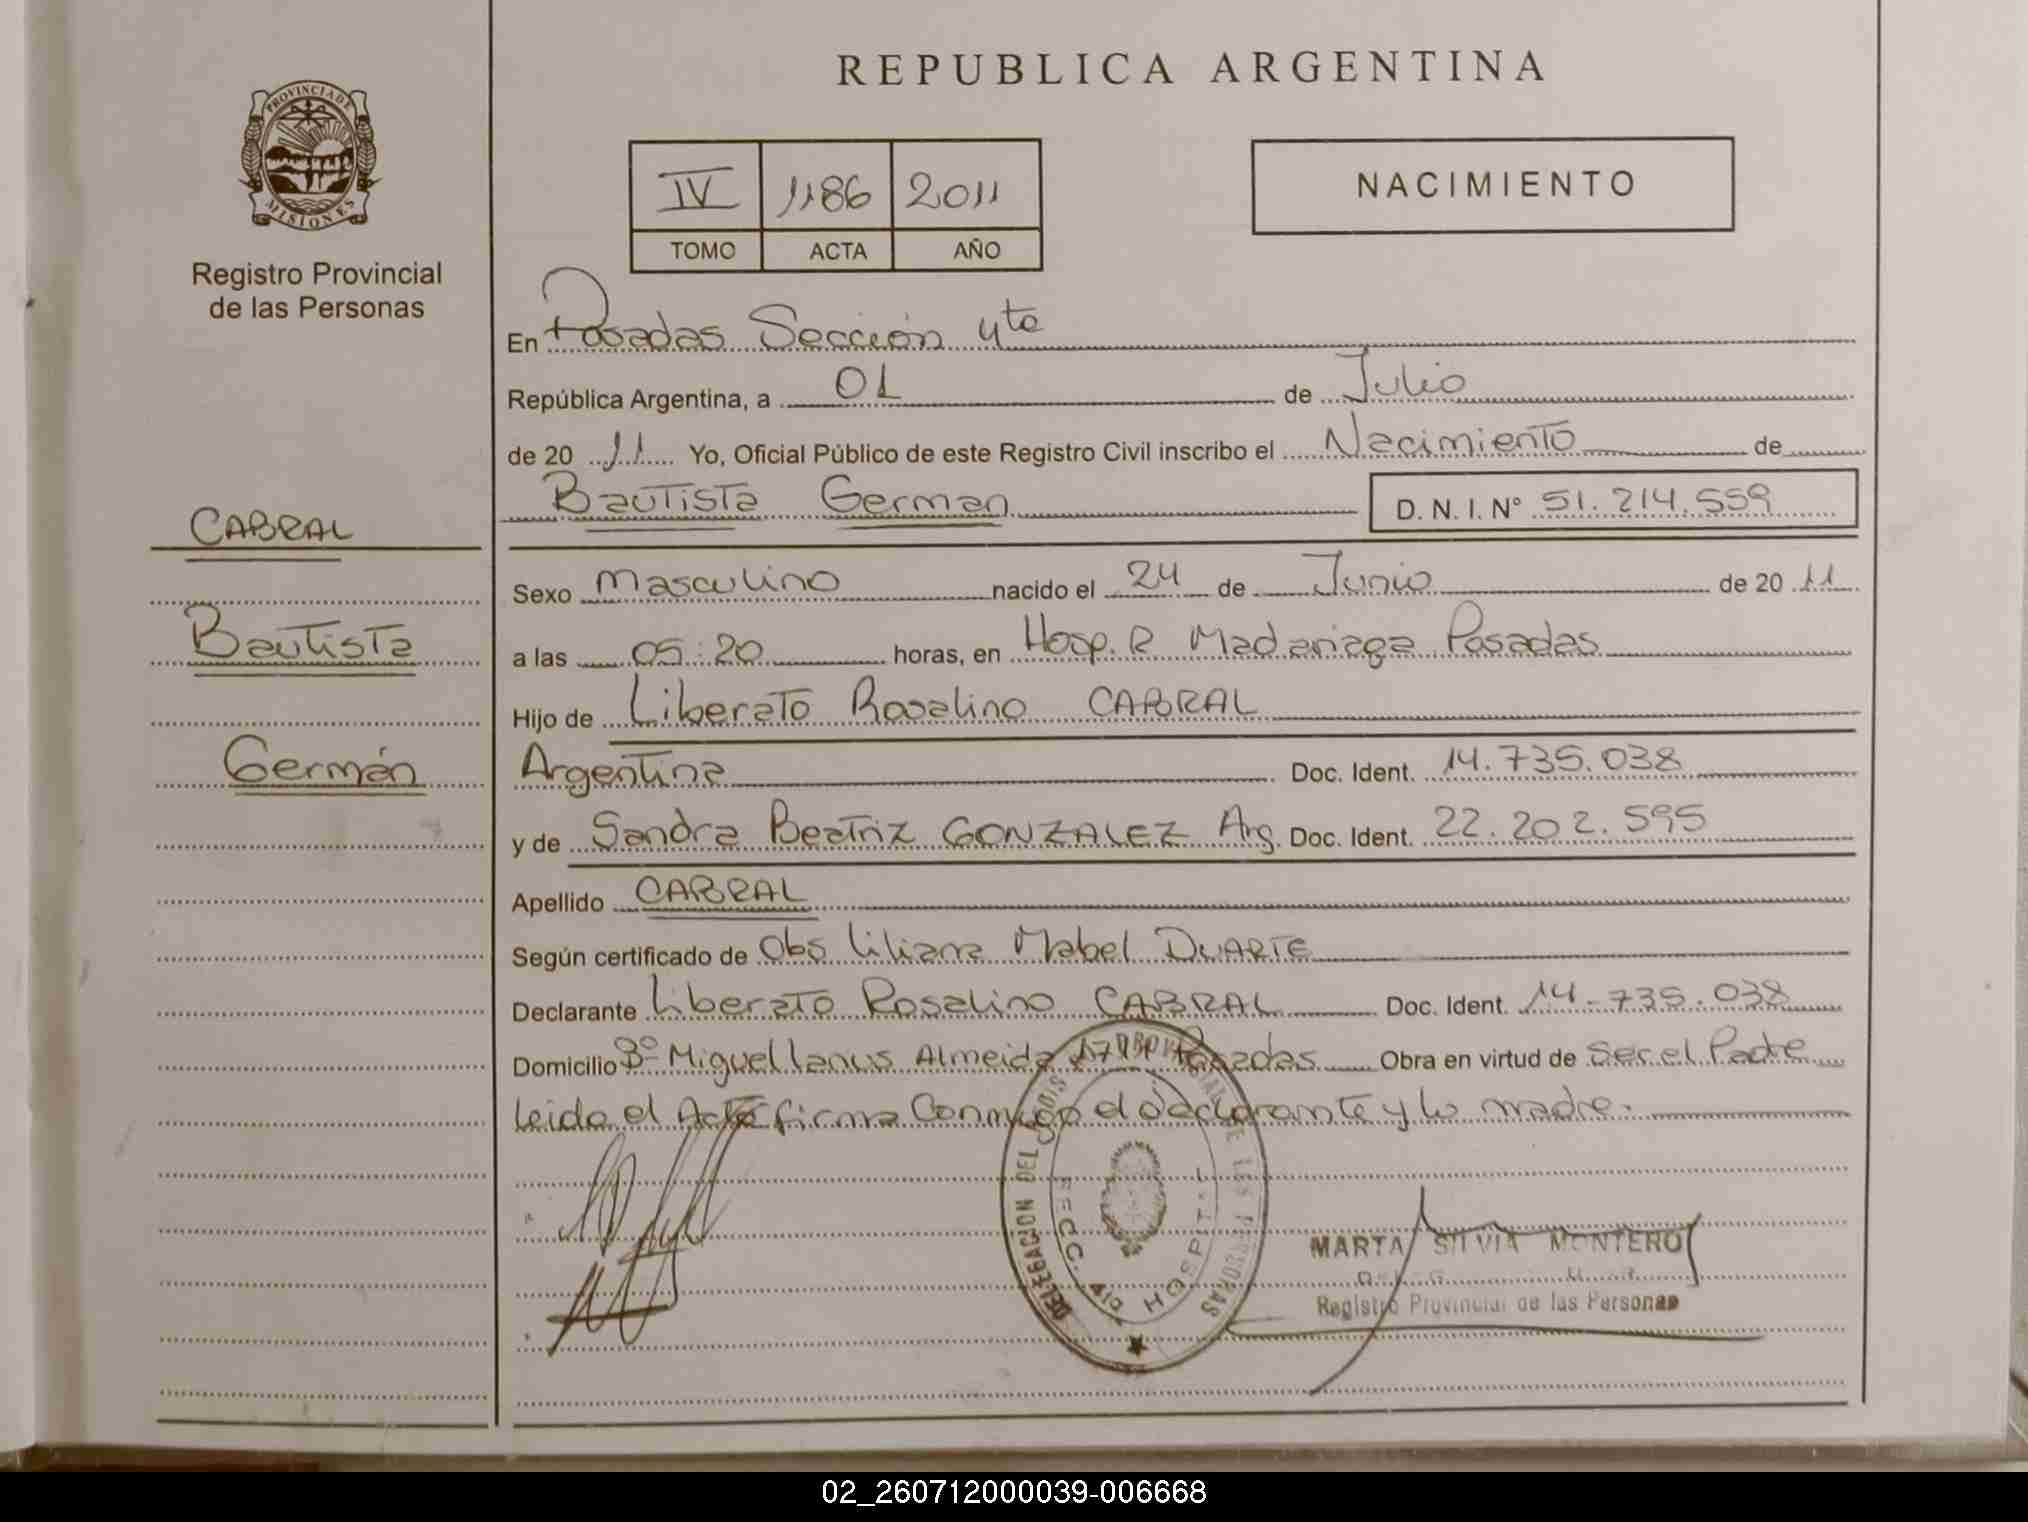 REPUBLICA ARGENTINA
PROVINCIA DE
MISIONES
Registro Provincial
de las Personas
IV 1186 2011
TOMO ACTA AÑO
NACIMIENTO
En Posadas Sección 4ta
República Argentina, a 01 de Julio
de 20 11 Yo, Oficial Público de este Registro Civil inscribo el Nacimiento de
Bautista German D. N. I. Nº 51.214.559
CABRAL
Bautista
Germán
Sexo Masculino nacido el 24 de Junio de 20 11
a las 05:20 horas, en Hosp. R Madariaga Posadas
Hijo de Liberato Rosalino CABRAL
Argentina Doc. Ident. 14.735.038
y de Sandra Beatriz GONZALEZ Arg. Doc. Ident. 22.202.595
Apellido CABRAL
Según certificado de Obs Liliana Mabel DUARTE
Declarante Liberato Rosalino CABRAL Doc. Ident. 14-735.038
Domicilio Bº Miguel Lanus Almeida Posadas Obra en virtud de Ser el Padre
Leida el Acta firma Conmigo el declarante y la madre.
DELEGACION DEL REGIS PROVINCIAL DE LAS PERSONAS
SECC. 4ta HOSPITAL
MARTA SILVIA MONTERO
Registro Provincial de las Personas
02_260712000039-006668